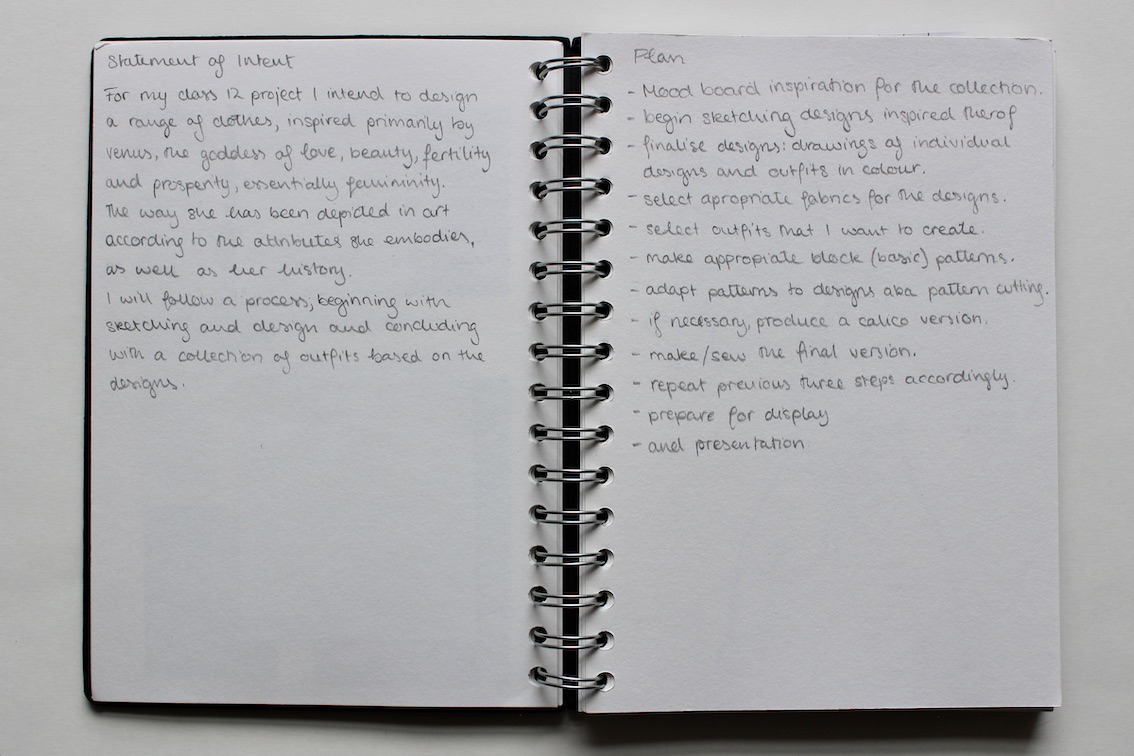 Statement of Intent
For my class 12 project I intend to design
a range of clothes, inspired primarily by
venus, the goddess of love, beauty, fertility
and prosperity, essentially femininity.
The way she has been depicted in art
according to the attributes she embodies,
as well as her history.
I will follow a process, beginning with
sketching and design and concluding
with a collection of outfits based on the
designs.
Plan
- Mood board inspiration for the collection.
- begin sketching designs inspired therof
- finalise designs: drawings of individual
designs and outfits in colour.
- select apropriate fabrics for the designs.
- select outfits that I want to create.
- make appropiate block (basic) patterns.
- adapt patterns to designs aka pattern cutting.
- if necessary, produce a calico version.
- make/sew the final version.
- repeat previous three steps accordingly.
- prepare for display
- and presentation